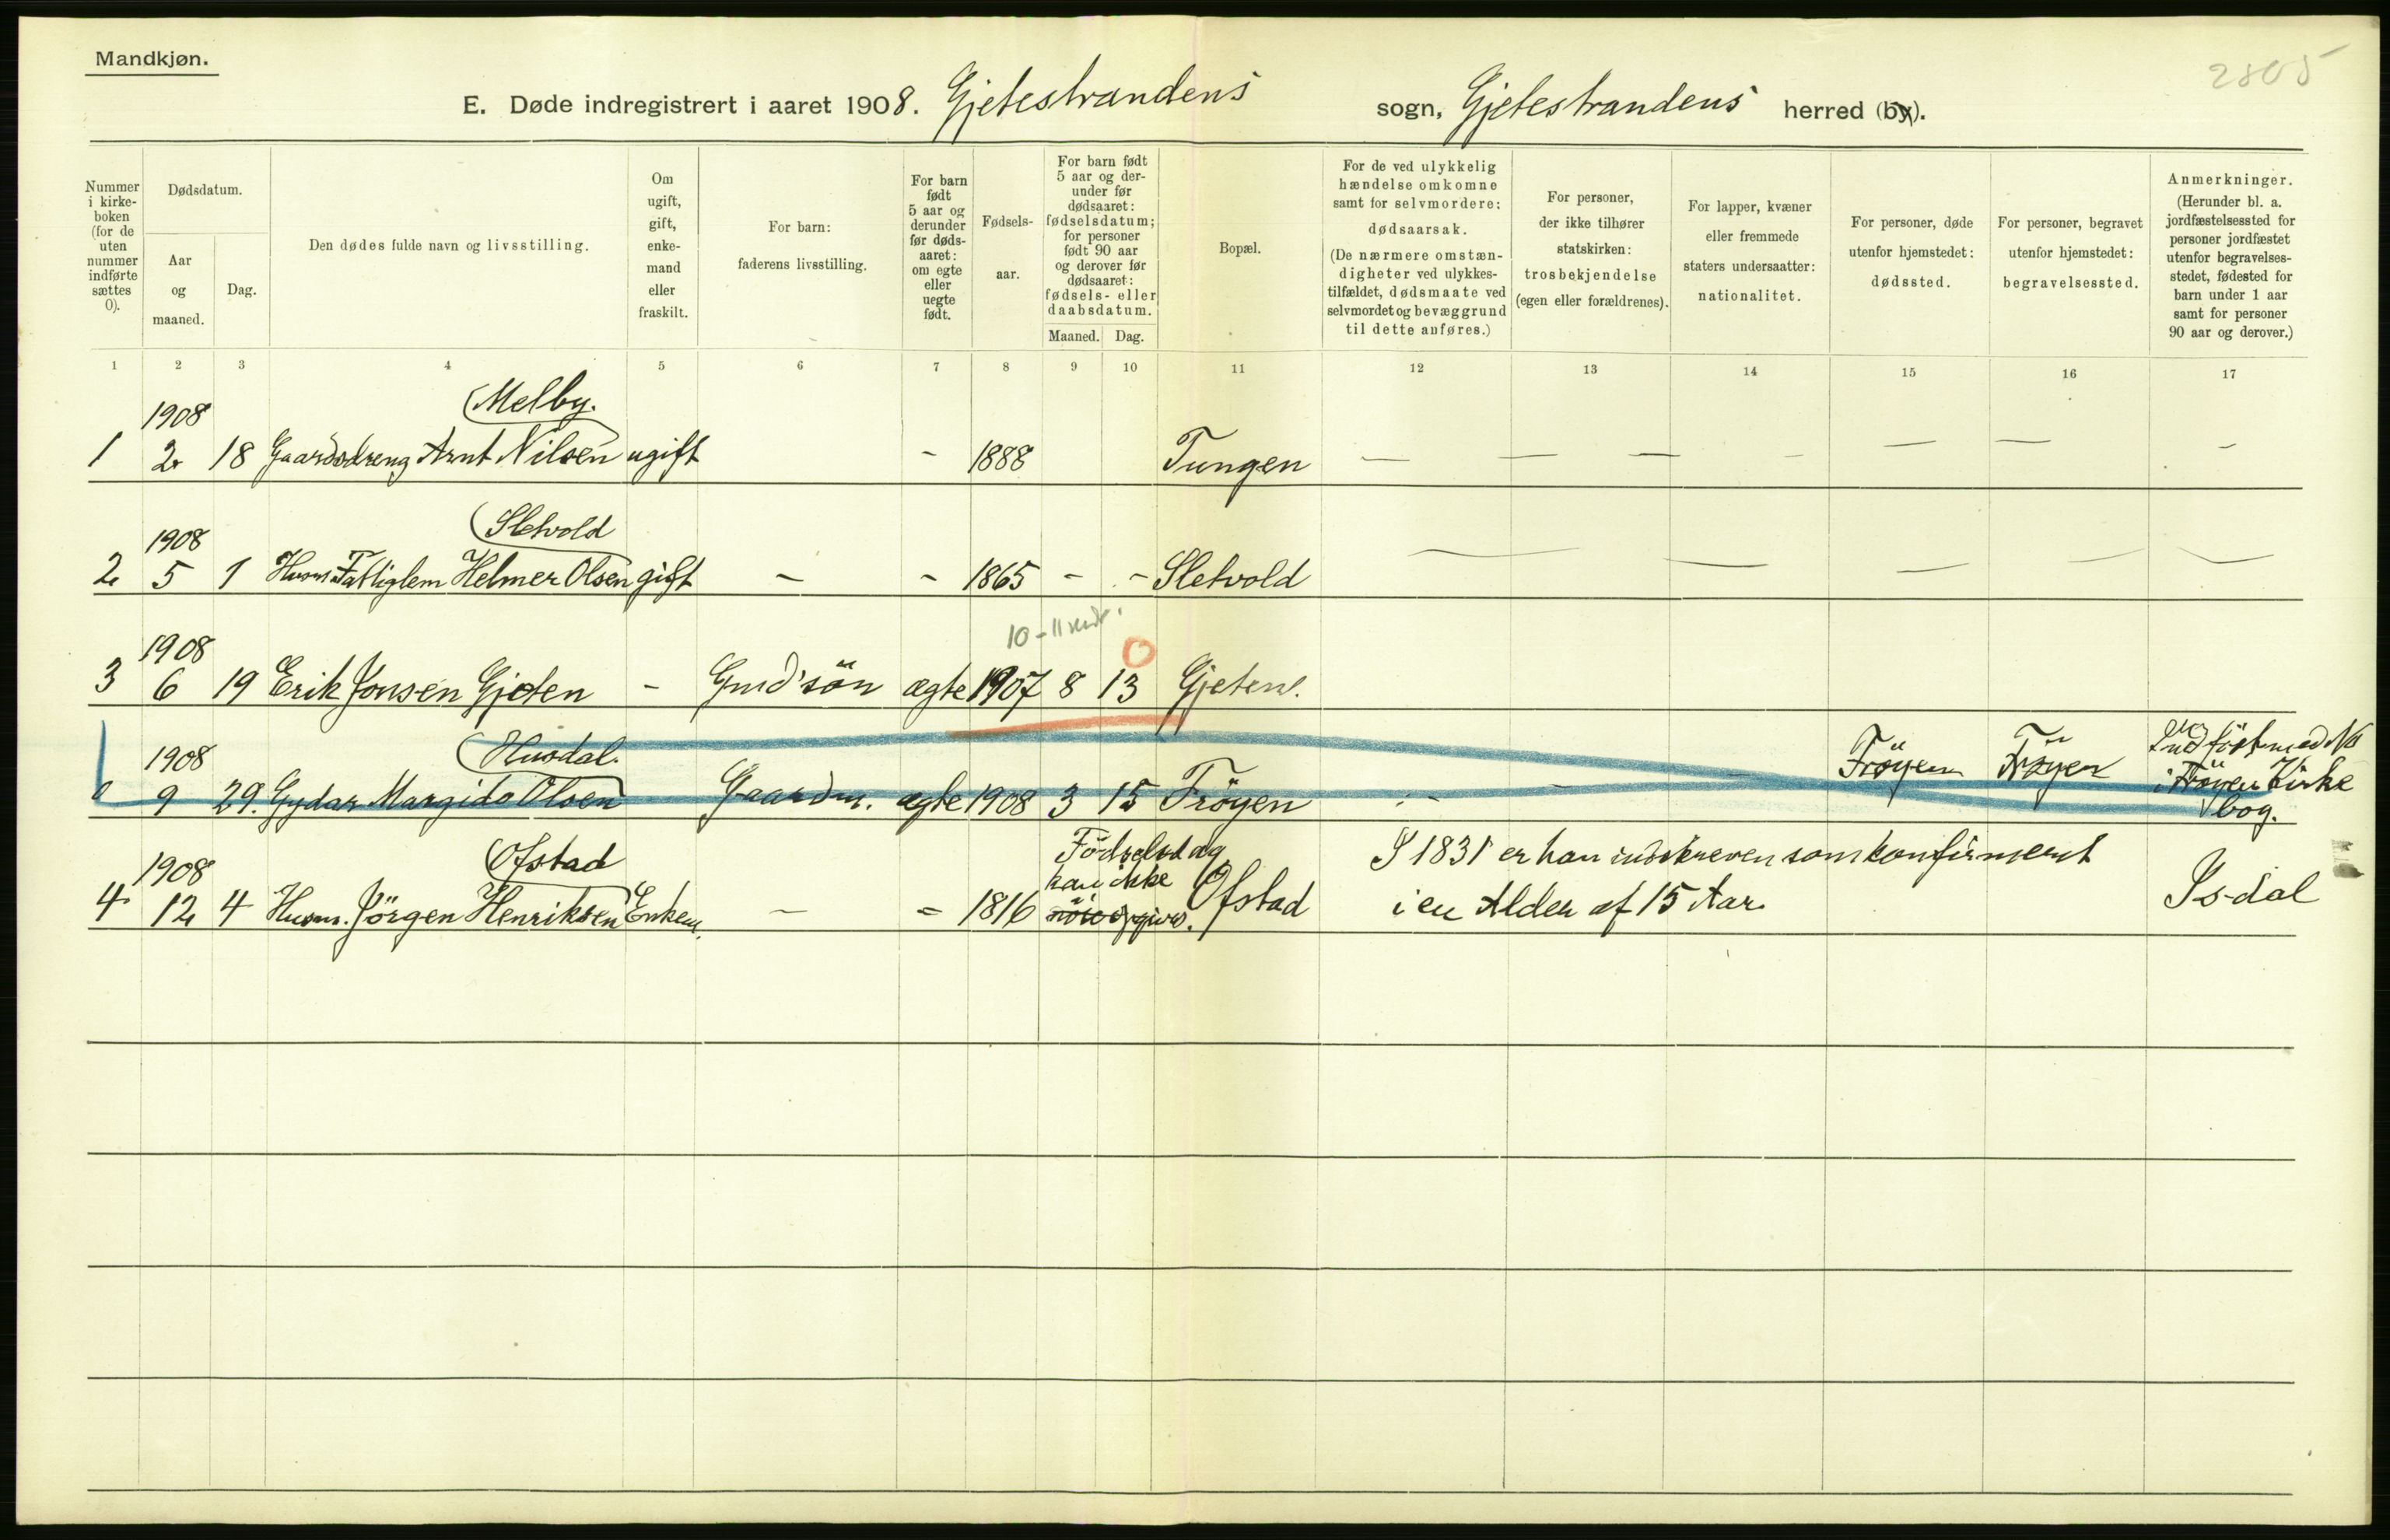 Mandkjøn.
2805
E. Døde indregistrert i aaret 1908. Gjetestrandens sogn, Gjetestrandens herred (by).
Nummer i kirke-boken (for de uten nummer indførte sættes 0).
Dødsdatum.
Aar og maaned.
Dag.
Den dødes fulde navn og livsstilling.
Om ugift, gift, enke-mand eller fraskilt.
For barn: faderens livsstilling.
For barn født 5 aar og derunder før døds-aaret: om egte eller uegte født.
Fødsels-aar.
For barn født 5 aar og der-under før dødsaaret: fødselsdatum; for personer født 90 aar og derover før dødsaaret: fødsels- eller daabsdatum.
Maaned. Dag.
Bopæl.
For de ved ulykkelig hændelse omkomne samt for selvmordere: dødsaarsak. (De nærmere omstæn-digheter ved ulykkes-tilfældet, dødsmaate ved selvmordet og bevæggrund til dette anføres.)
For personer, der ikke tilhører statskirken: trosbekjendelse (egen eller forældrenes).
For lapper, kvæner eller fremmede staters undersaatter: nationalitet.
For personer, døde utenfor hjemstedet: dødssted.
For personer, begravet utenfor hjemstedet: begravelsessted.
Anmerkninger. (Herunder bl. a. jordfæstelsessted for personer jordfæstet utenfor begravelses-stedet, fødested for barn under 1 aar samt for personer 90 aar og derover.)
1 2 3 4 5 6 7 8 9 10 11 12 13 14 15 16 17
1908 (Melby.
1 2 18 Gaardsdreng Arnt Nilsen ugift - 1888 Tungen — — — - — — -
1908 (Sletvold
2 5 1 Husm. Fattiglem Helmer Olsen gift - - 1865 - - Sletvold
10-11
1908 0
3 6 19 Erik Jonsen Gjeten - Gmd'sön ægte 1907 8 13 Gjeten.
1908 (Husdal. Fröyen Fröyen Indført med No
0 9 29. Gydar Margido Olsen Gaardm. ægte 1908 3 15 Fröyen i Fröyen Kirke
bog.
1908 (Ofstad Födselsdag I 1831 er han indskreven som konfirmeret
kan ikke
4 12 4 Husm. Jörgen Henriksen Enkem. - - 1816 opgives. Ofstad i en Alder af 15 Aar. Is-dal